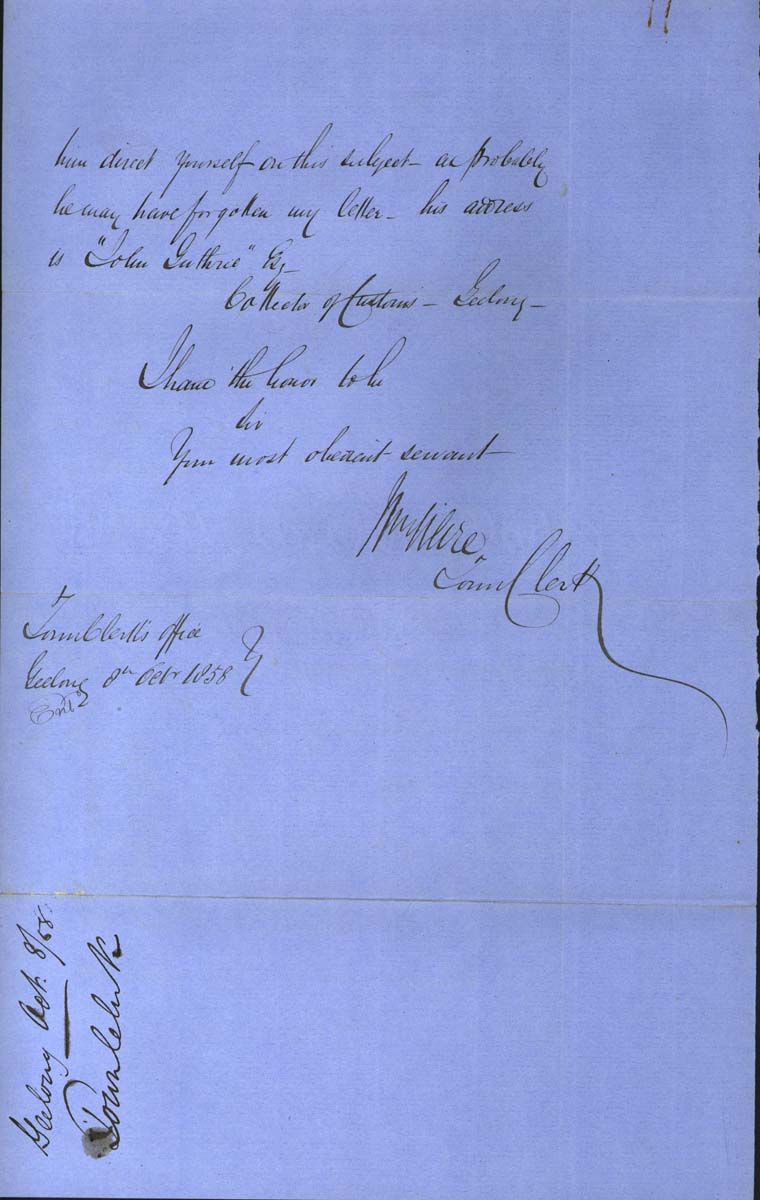 him direct yourself on this subject - as probably
he may have forgotten my letter - his address
is "John Guthrie" Esq
Collector of Customs - Geelong -
I have the honor to be
Sir
Your most obedient servant
Wm Weire
Town Clerk
Town Clerk's office
Geelong 8th Octr 1858
Geelong Oct. 8/58.
Town Clerk